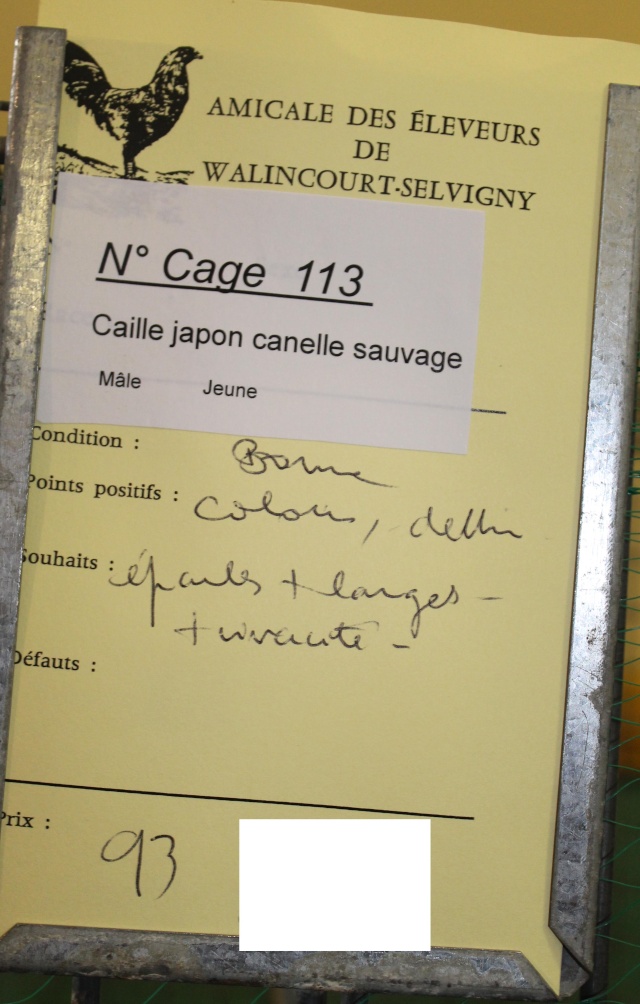 AMICALE DES ÉLEVEURS
DE
WALINCOURT-SELVIGNY
N° Cage 113
Caille japon canelle sauvage
Mâle Jeune
Condition : Bonne
Points positifs : coloris, dessin
Souhaits : épaules + larges -
+ vivacité -
Défauts :
Prix : 93